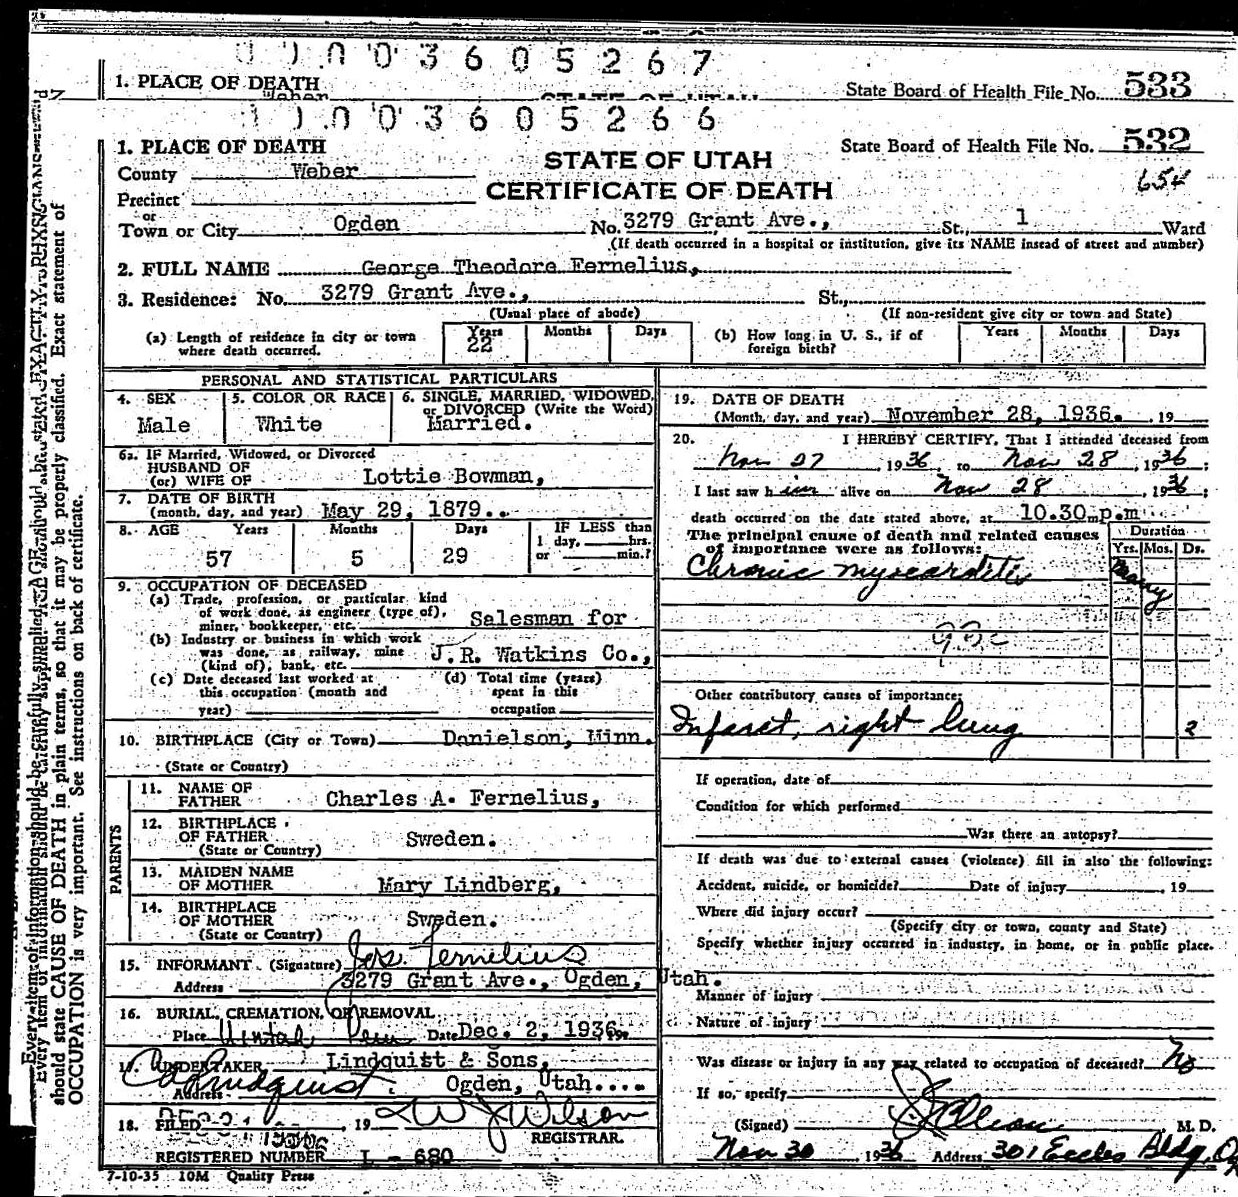 0003605267
1. PLACE OF DEATH
State Board of Health File No. 533
0003605266
1. PLACE OF DEATH
State Board of Health File No. 532
654
STATE OF UTAH
CERTIFICATE OF DEATH
County Weber
Precinct
or
Town or City Ogden No. 3279 Grant Ave., St., 1 Ward
(If death occurred in a hospital or institution, give its NAME insead of street and number)
2. FULL NAME George Theodore Fernelius,
3. Residence: No. 3279 Grant Ave., St.,
(Usual place of abode) (If non-resident give city or town and State)
(a) Length of residence in city or town where death occurred. Years 22 Months Days
(b) How long in U. S., if of foreign birth? Years Months Days
PERSONAL AND STATISTICAL PARTICULARS
4. SEX Male
5. COLOR OR RACE White
6. SINGLE, MARRIED, WIDOWED, or DIVORCED (Write the Word) Married.
6a. IF Married, Widowed, or Divorced
HUSBAND OF
(or) WIFE OF Lottie Bowman,
7. DATE OF BIRTH
(month, day, and year) May 29, 1879..
8. AGE Years Months Days IF LESS than
57 5 29 1 day, hrs.
or min.?
9. OCCUPATION OF DECEASED
(a) Trade, profession, or particular kind
of work done, as engineer (type of),
miner, bookkeeper, etc. Salesman for
(b) Industry or business in which work
was done, as railway, mine
(kind of), bank, etc. J.R. Watkins Co.,
(c) Date deceased last worked at
this occupation (month and
year)
(d) Total time (years)
spent in this
occupation
10. BIRTHPLACE (City or Town) Danielson, Minn.
(State or Country)
PARENTS
11. NAME OF
FATHER Charles A. Fernelius,
12. BIRTHPLACE
OF FATHER Sweden.
(State or Country)
13. MAIDEN NAME
OF MOTHER Mary Lindberg,
14. BIRTHPLACE
OF MOTHER Sweden.
(State or Country)
15. INFORMANT (Signature) Jos. Fernelius
Address 3279 Grant Ave., Ogden, Utah.
16. BURIAL, CREMATION, OR REMOVAL
Place Uintah Date Dec. 2, 1936.
17. UNDERTAKER Lindquist & Sons,
Address Ogden, Utah....
18. FILED , 19 W J Wilson
REGISTRAR.
REGISTERED NUMBER L - 680
7-10-35 10M Quality Press
19. DATE OF DEATH
(Month, day, and year) November 28, 1936. , 19
20. I HEREBY CERTIFY, That I attended deceased from
Nov 27 , 1936, to Nov 28 , 1936;
I last saw him alive on Nov 28 , 1936;
death occurred on the date stated above, at 10.30 p.m
The principal cause of death and related causes
of importance were as follows:
Duration
Yrs. Mos. Ds.
Chronic myocarditis Many
Other contributory causes of importance:
Infarct, right lung 2
If operation, date of
Condition for which performed
Was there an autopsy?
If death was due to external causes (violence) fill in also the following:
Accident, suicide, or homicide? Date of injury , 19
Where did injury occur?
(Specify city or town, county and State)
Specify whether injury occurred in industry, in home, or in public place.
Manner of injury
Nature of injury
Was disease or injury in any way related to occupation of deceased? No
If so, specify
(Signed) M. D.
Nov 30 1936 Address 301 Eccles Bldg.
should state CAUSE OF DEATH in plain terms, so that it may be properly classified. Exact statement of
OCCUPATION is very important. See instructions on back of certificate.